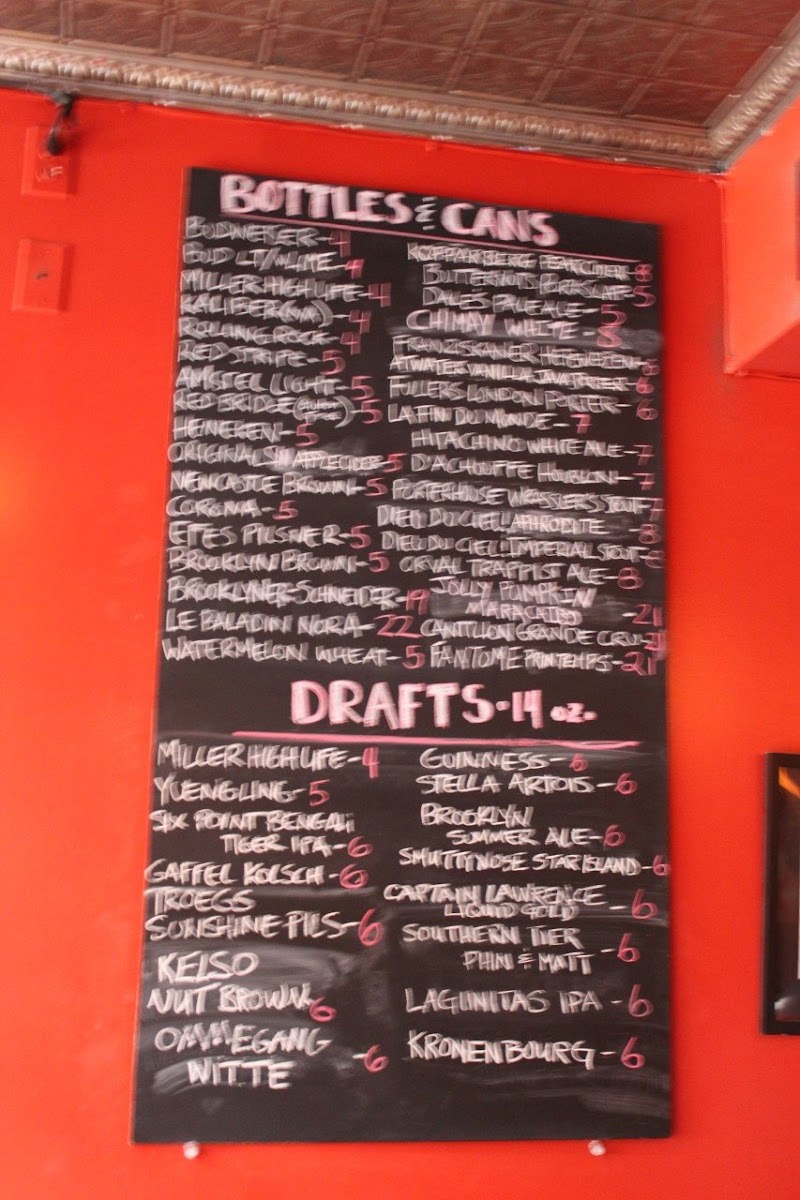 BOTTLES & CANS
BUDWEISER-4
BUD LT/W LIME-4
MILLER HIGH LIFE-4
KALIBER(N/A)-4
ROLLING ROCK-4
RED STRIPE-5
AMSTEL LIGHT-5
RED BRIDGE(GLUTEN FREE)-5
HEINEKEN-5
ORIGINAL SIN APPLE CIDER-5
NEWCASTLE BROWN-5
CORONA-5
EFES PILSNER-5
BROOKLYN BROWN-5
BROOKLYNER-SCHNEIDER-19
LE BALADIN NORA-22
WATERMELON WHEAT-5
KOPPARBERG PEAR CIDER-8
BUTTERNUTS PORKSLAP-5
DALES PALE ALE-5
CHIMAY WHITE-8
FRANZISKANER HEFEWEIZEN-6
ATWATER VANILLA JAVA PORTER-6
FULLERS LONDON PORTER-6
LA FIN DU MONDE-7
HITACHINO WHITE ALE-7
D'ACHOUFFE HOUBLON-7
PORTERHOUSE WRASSLERS STOUT-7
DIEU DU CIEL! APHRODITE-8
DIEU DU CIEL! IMPERIAL STOUT-8
ORVAL TRAPPIST ALE-8
JOLLY PUMPKIN
MARACAIBO -21
CANTILLON GRANDE CRU-21
FANTOME PRINTEMPS-21
DRAFTS-14 oz.
MILLER HIGH LIFE-4
YUENGLING-5
SIX POINT BENGALI
TIGER IPA-6
GAFFEL KOLSCH-6
TROEGS
SUNSHINE PILS-6
KELSO
NUT BROWN-6
OMMEGANG
WITTE -6
GUINNESS-6
STELLA ARTOIS-6
BROOKLYN
SUMMER ALE-6
SMUTTYNOSE STAR ISLAND-6
CAPTAIN LAWRENCE
LIQUID GOLD -6
SOUTHERN TIER
PHIN & MATT -6
LAGUNITAS IPA-6
KRONENBOURG-6